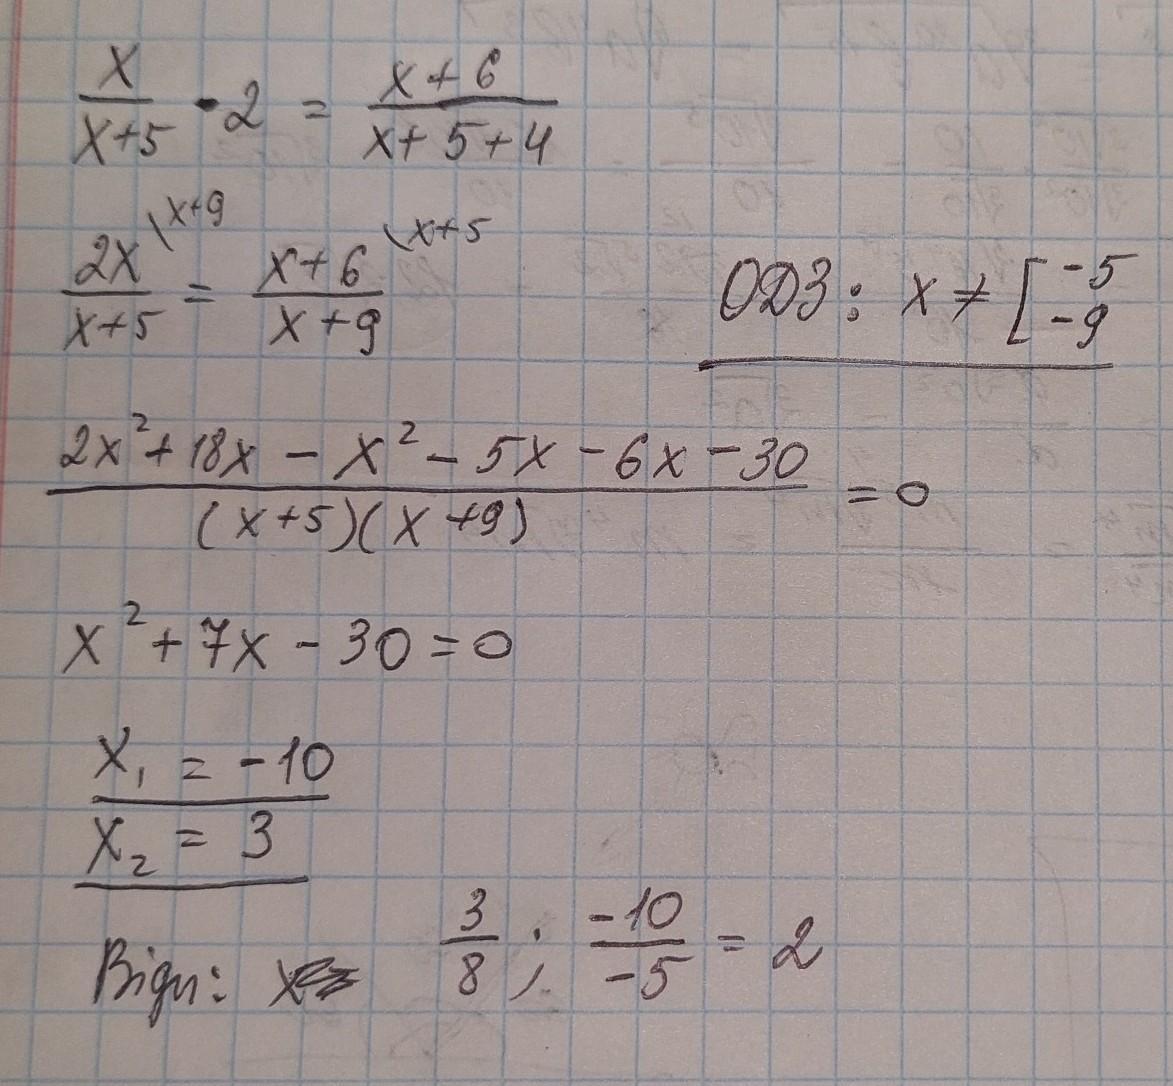 x/(x+5) • 2 = (x+6)/(x+5+4)
2x/(x+5) \x+9 = (x+6)/(x+9) \x+5
ОДЗ: x ≠ [-5 -9
(2x²+18x - x² - 5x - 6x - 30)/((x+5)(x+9)) = 0
x² + 7x - 30 = 0
x₁ = -10
x₂ = 3
Відп: 3/8 ; -10/-5 = 2